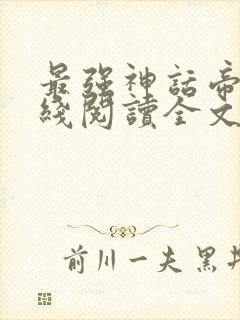 最强神話帝
綫閱讀全文
前川一夫黑